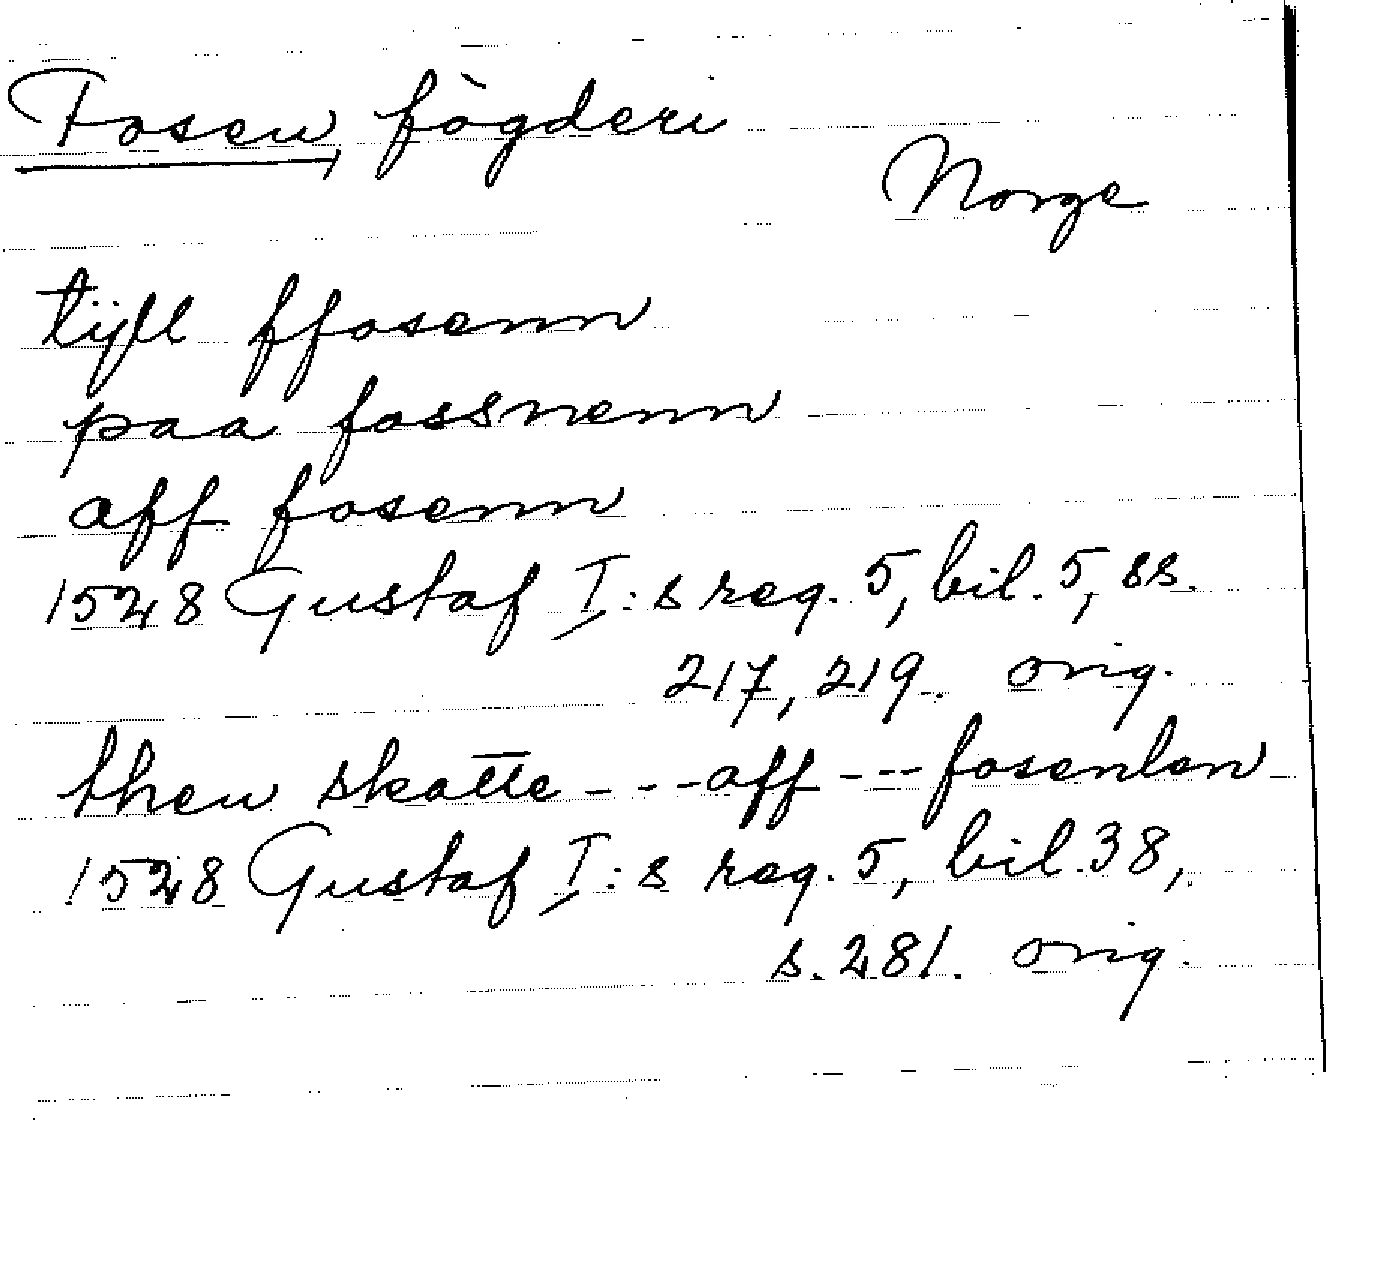 Fosen, fögderi
Norge
tÿll ffosenn
paa fossnenn
aff fosenn
1528 Gustaf I:s reg. 5, bil. 5, ss.
217, 219. orig.
then skatte - - - aff - - - fosenlen
1528 Gustaf I:s reg. 5, bil. 38,
s. 281. orig.